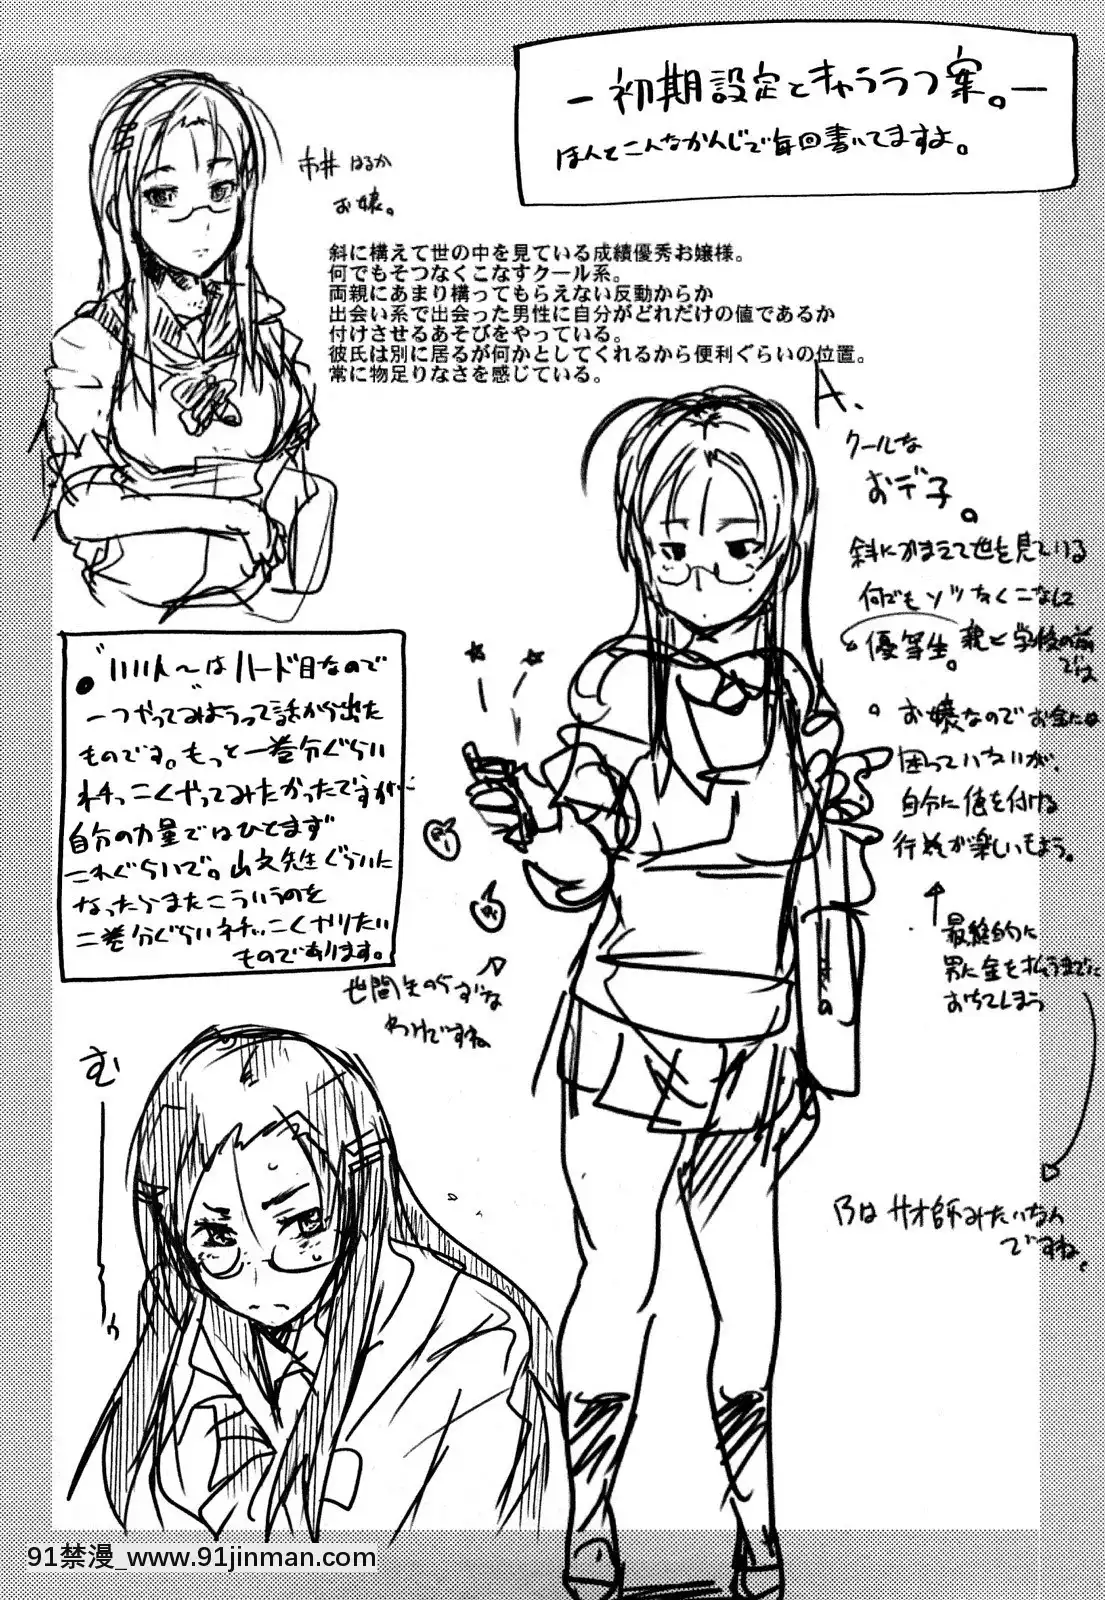 －初期設定とキャララフ案。－
ほんとこんなかんじで毎回書いてますよ。
市井 はるか
お嬢。
斜に構えて世の中を見ている成績優秀お嬢様。
何でもそつなくこなすクール系。
両親にあまり構ってもらえない反動からか
出会い系で出会った男性に自分がどれだけの値であるか
付けさせるあそびをやっている。
彼氏は別に居るが何かとしてくれるから便利ぐらいの位置。
常に物足りなさを感じている。
A.
クールな
おデ子。
斜にかまえて世を見ている
何でもソツなくこなして
優等生。親と学校の前
では
お嬢なのでお金には
困っていないが、
自分に値を付ける
行為が楽しいもよう。
↑
最終的に
男に金を払うまでに
おちてしまう
乃はサオ師みたいなもん
ですね。
"いいい人〜"はハード目なので
一つやってみようって話から出た
ものです。もっと一巻分ぐらい
ネチっこくやってみたかったですが…
自分の力量ではひとまず
これぐらいで。山文先生ぐらいに
なったらまたこういうのを
二巻分ぐらいネチっこくやりたい
ものであります。
世間知らずな
わけですね
む
っ
91禁漫_www.91jinman.com